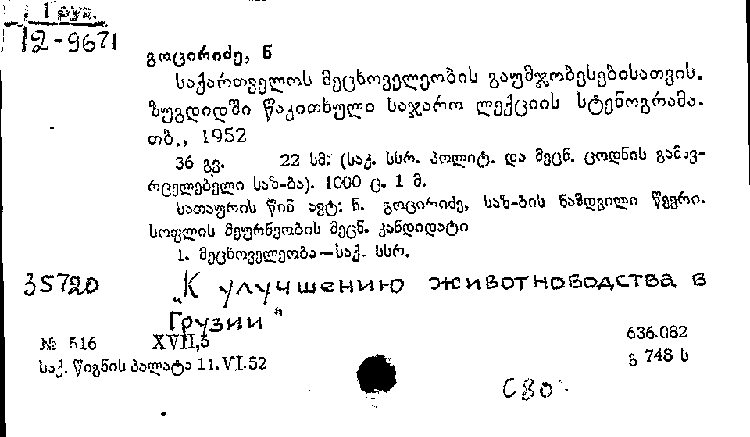 1 Груз.
12-9671
გოცირიძე, ნ
საქართველოს მეცხოველეობის გაუმჯობესებისათვის.
ზუგდიდში წაკითხული საჯარო ლექციის სტენოგრამა.
თბ., 1952
36 გვ. 22 სმ. (საქ. სსრ. პოლიტ. და მეცნ. ცოდნის გამავ-
რცელებელი საზ-ბა). 1000 ც. 1 მ.
სათაურის წინ ავტ: ნ. გოცირიძე, საზ-ბის ნამდვილი წევრი.
სოფლის მეურნეობის მეცნ. კანდიდატი
1. მეცხოველეობა — საქ. სსრ.
35720 „К улучшению животноводства в
Грузии"
№ 516 XVII,3 636.082
საქ. წიგნის პალატა 11.VI.52 გ 748 ს
С80